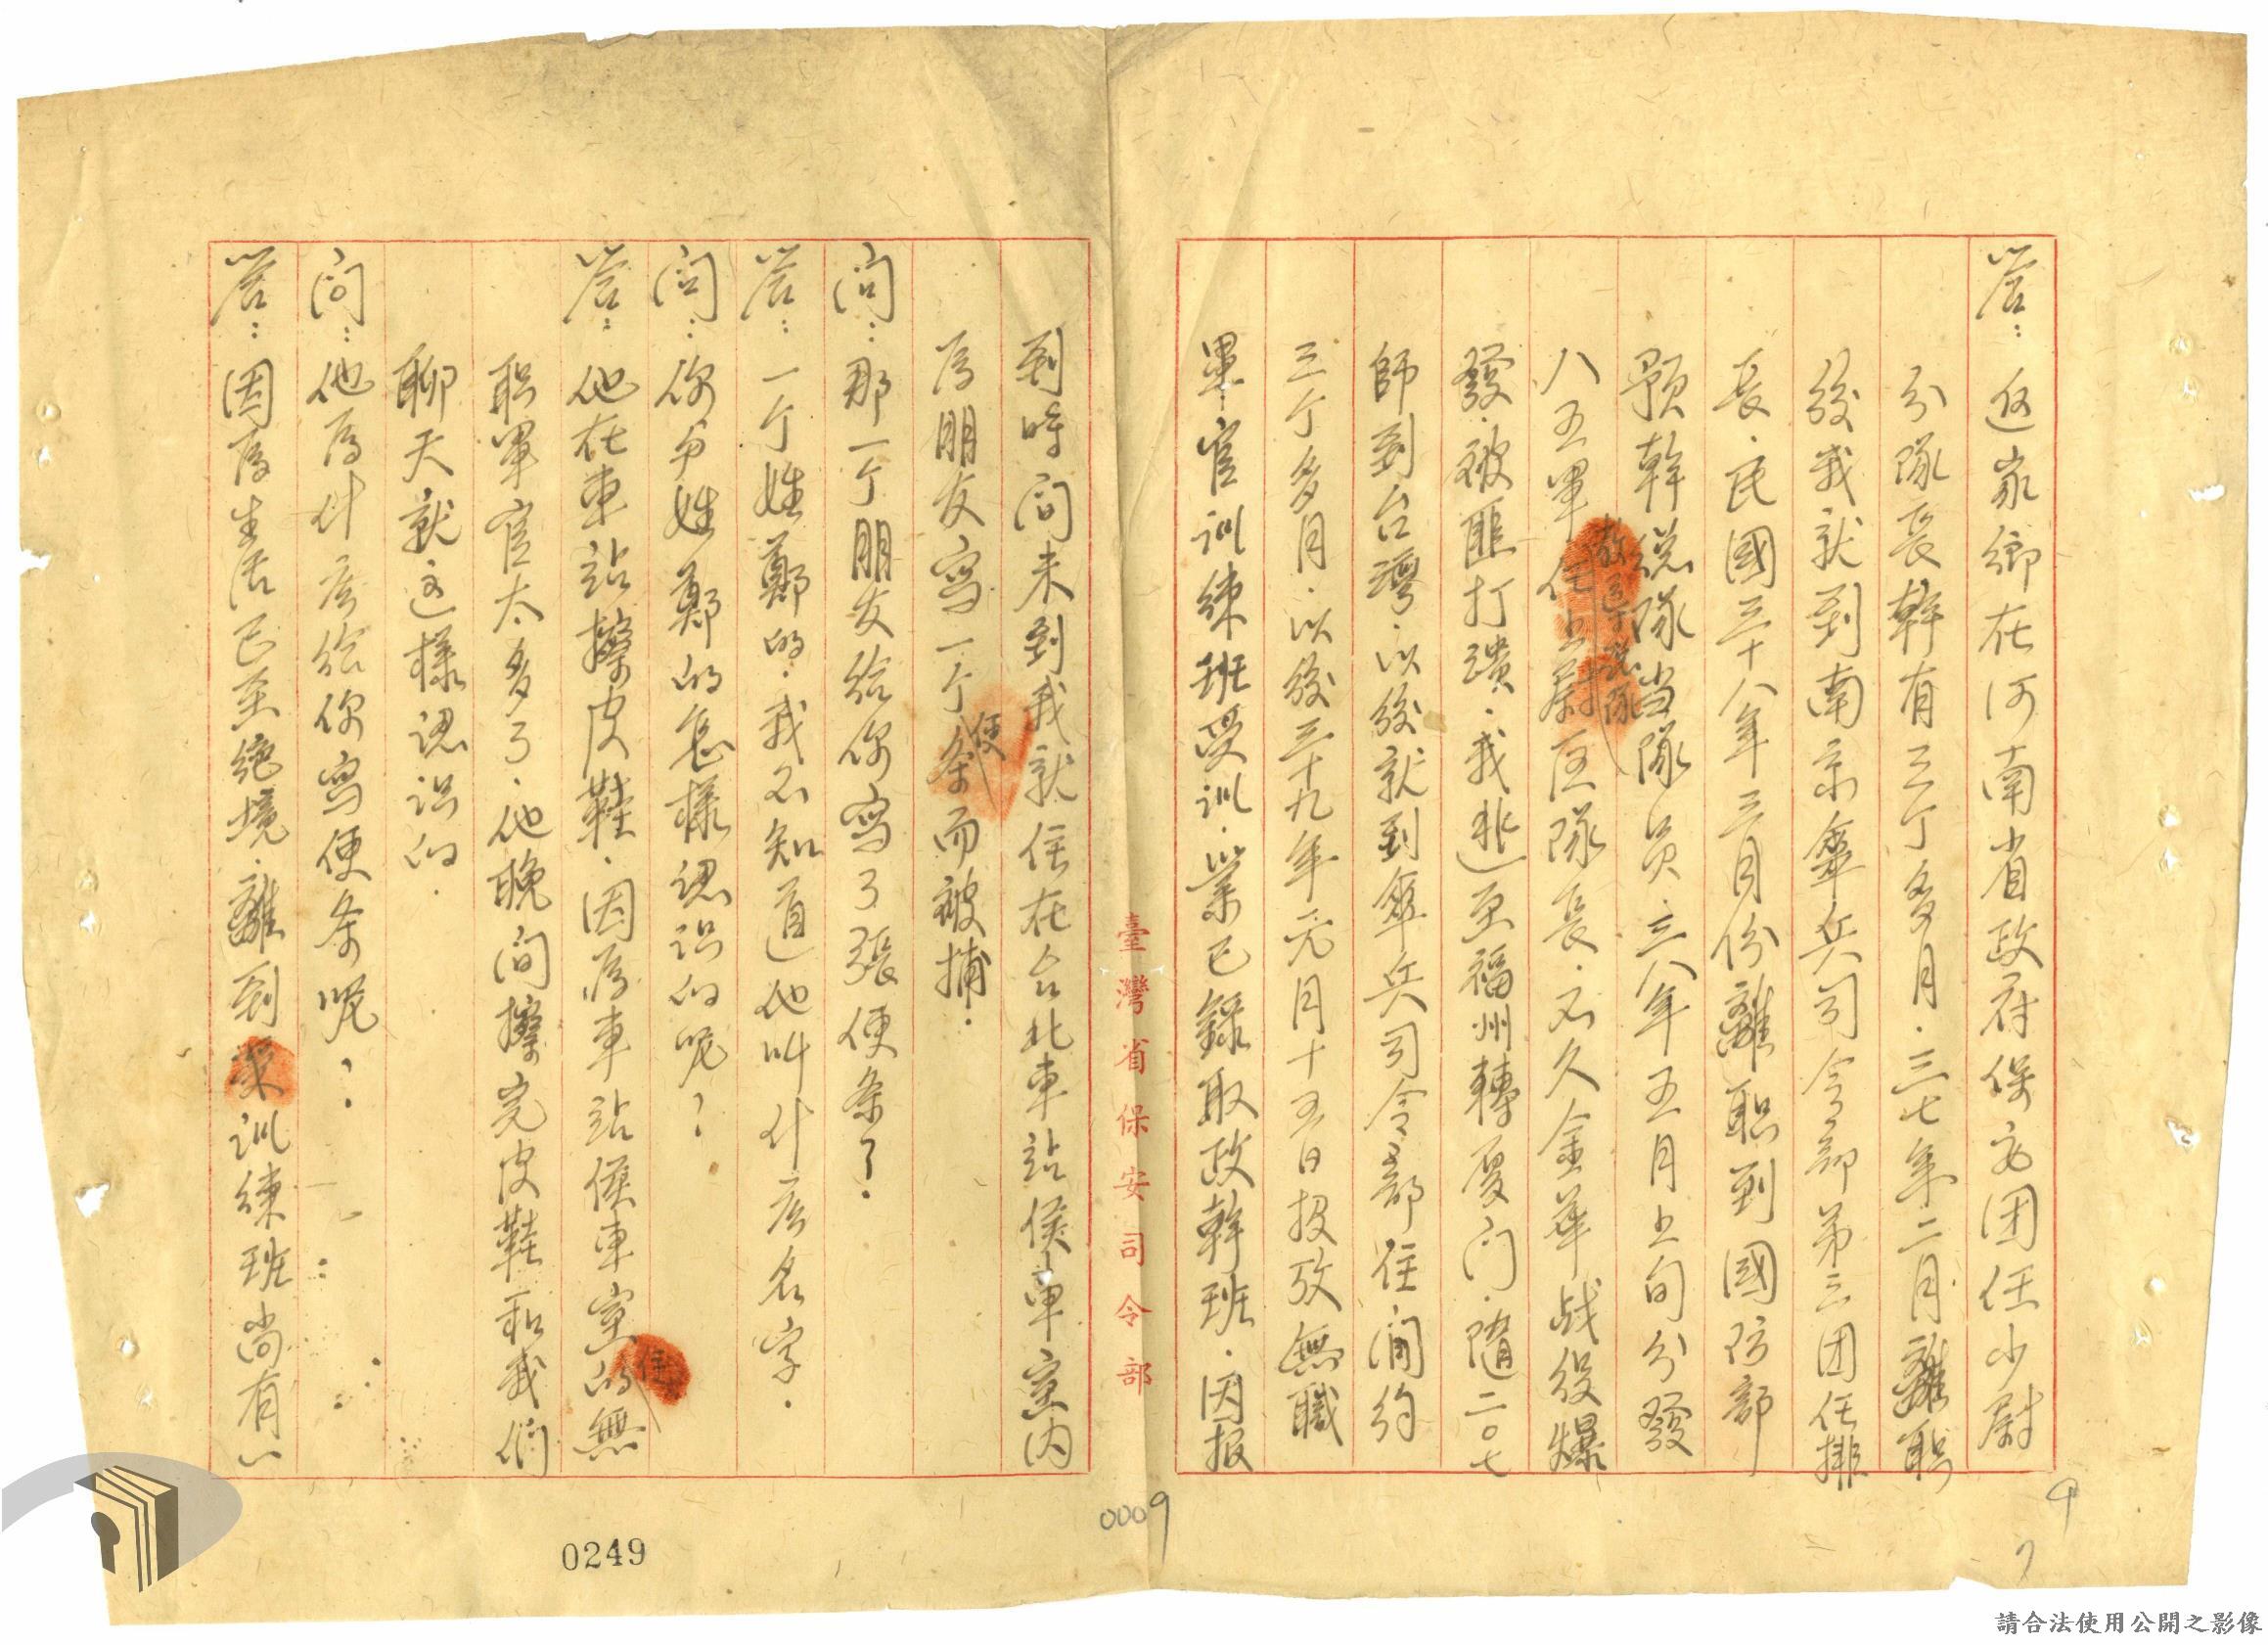 答：返家鄉在河南省政府保安团任少尉
分隊長幹有三个多月．三七年二月離职
後我就到南京傘兵司令部第三团任排
長．民國三十八年三月份離职到國防部
預幹總隊当隊员．三八年五月上旬分發
教導總隊
八五軍任上尉区隊長．不久金華战役爆
發．被匪打潰．我逃至福州轉厦门．隨二〇七
師到台灣．以後就到傘兵司令部住閒約
三个多月．以後三十九年元月十五日投攷無職
軍官訓練班受訓．業已錄取政幹班．因报
臺灣省保安司令部
到時间未到我就住在台北車站候車室内
為朋友寫一个便条而被捕．
问：那一个朋友給你寫了張便条？
答：一个姓鄭的．我不知道他叫什庅名字．
问：你与姓鄭的怎樣認识的呢？
答：他在車站擦皮鞋．因為車站候車室住的無
职軍官太多了．他晚间擦完皮鞋和我们
聊天就这樣認识的．
问：他為什庅给你寫便条呢？
答：因為生活已至绝境．離到 訓練班尚有一
0009
0249
9
7
請合法使用公開之影像